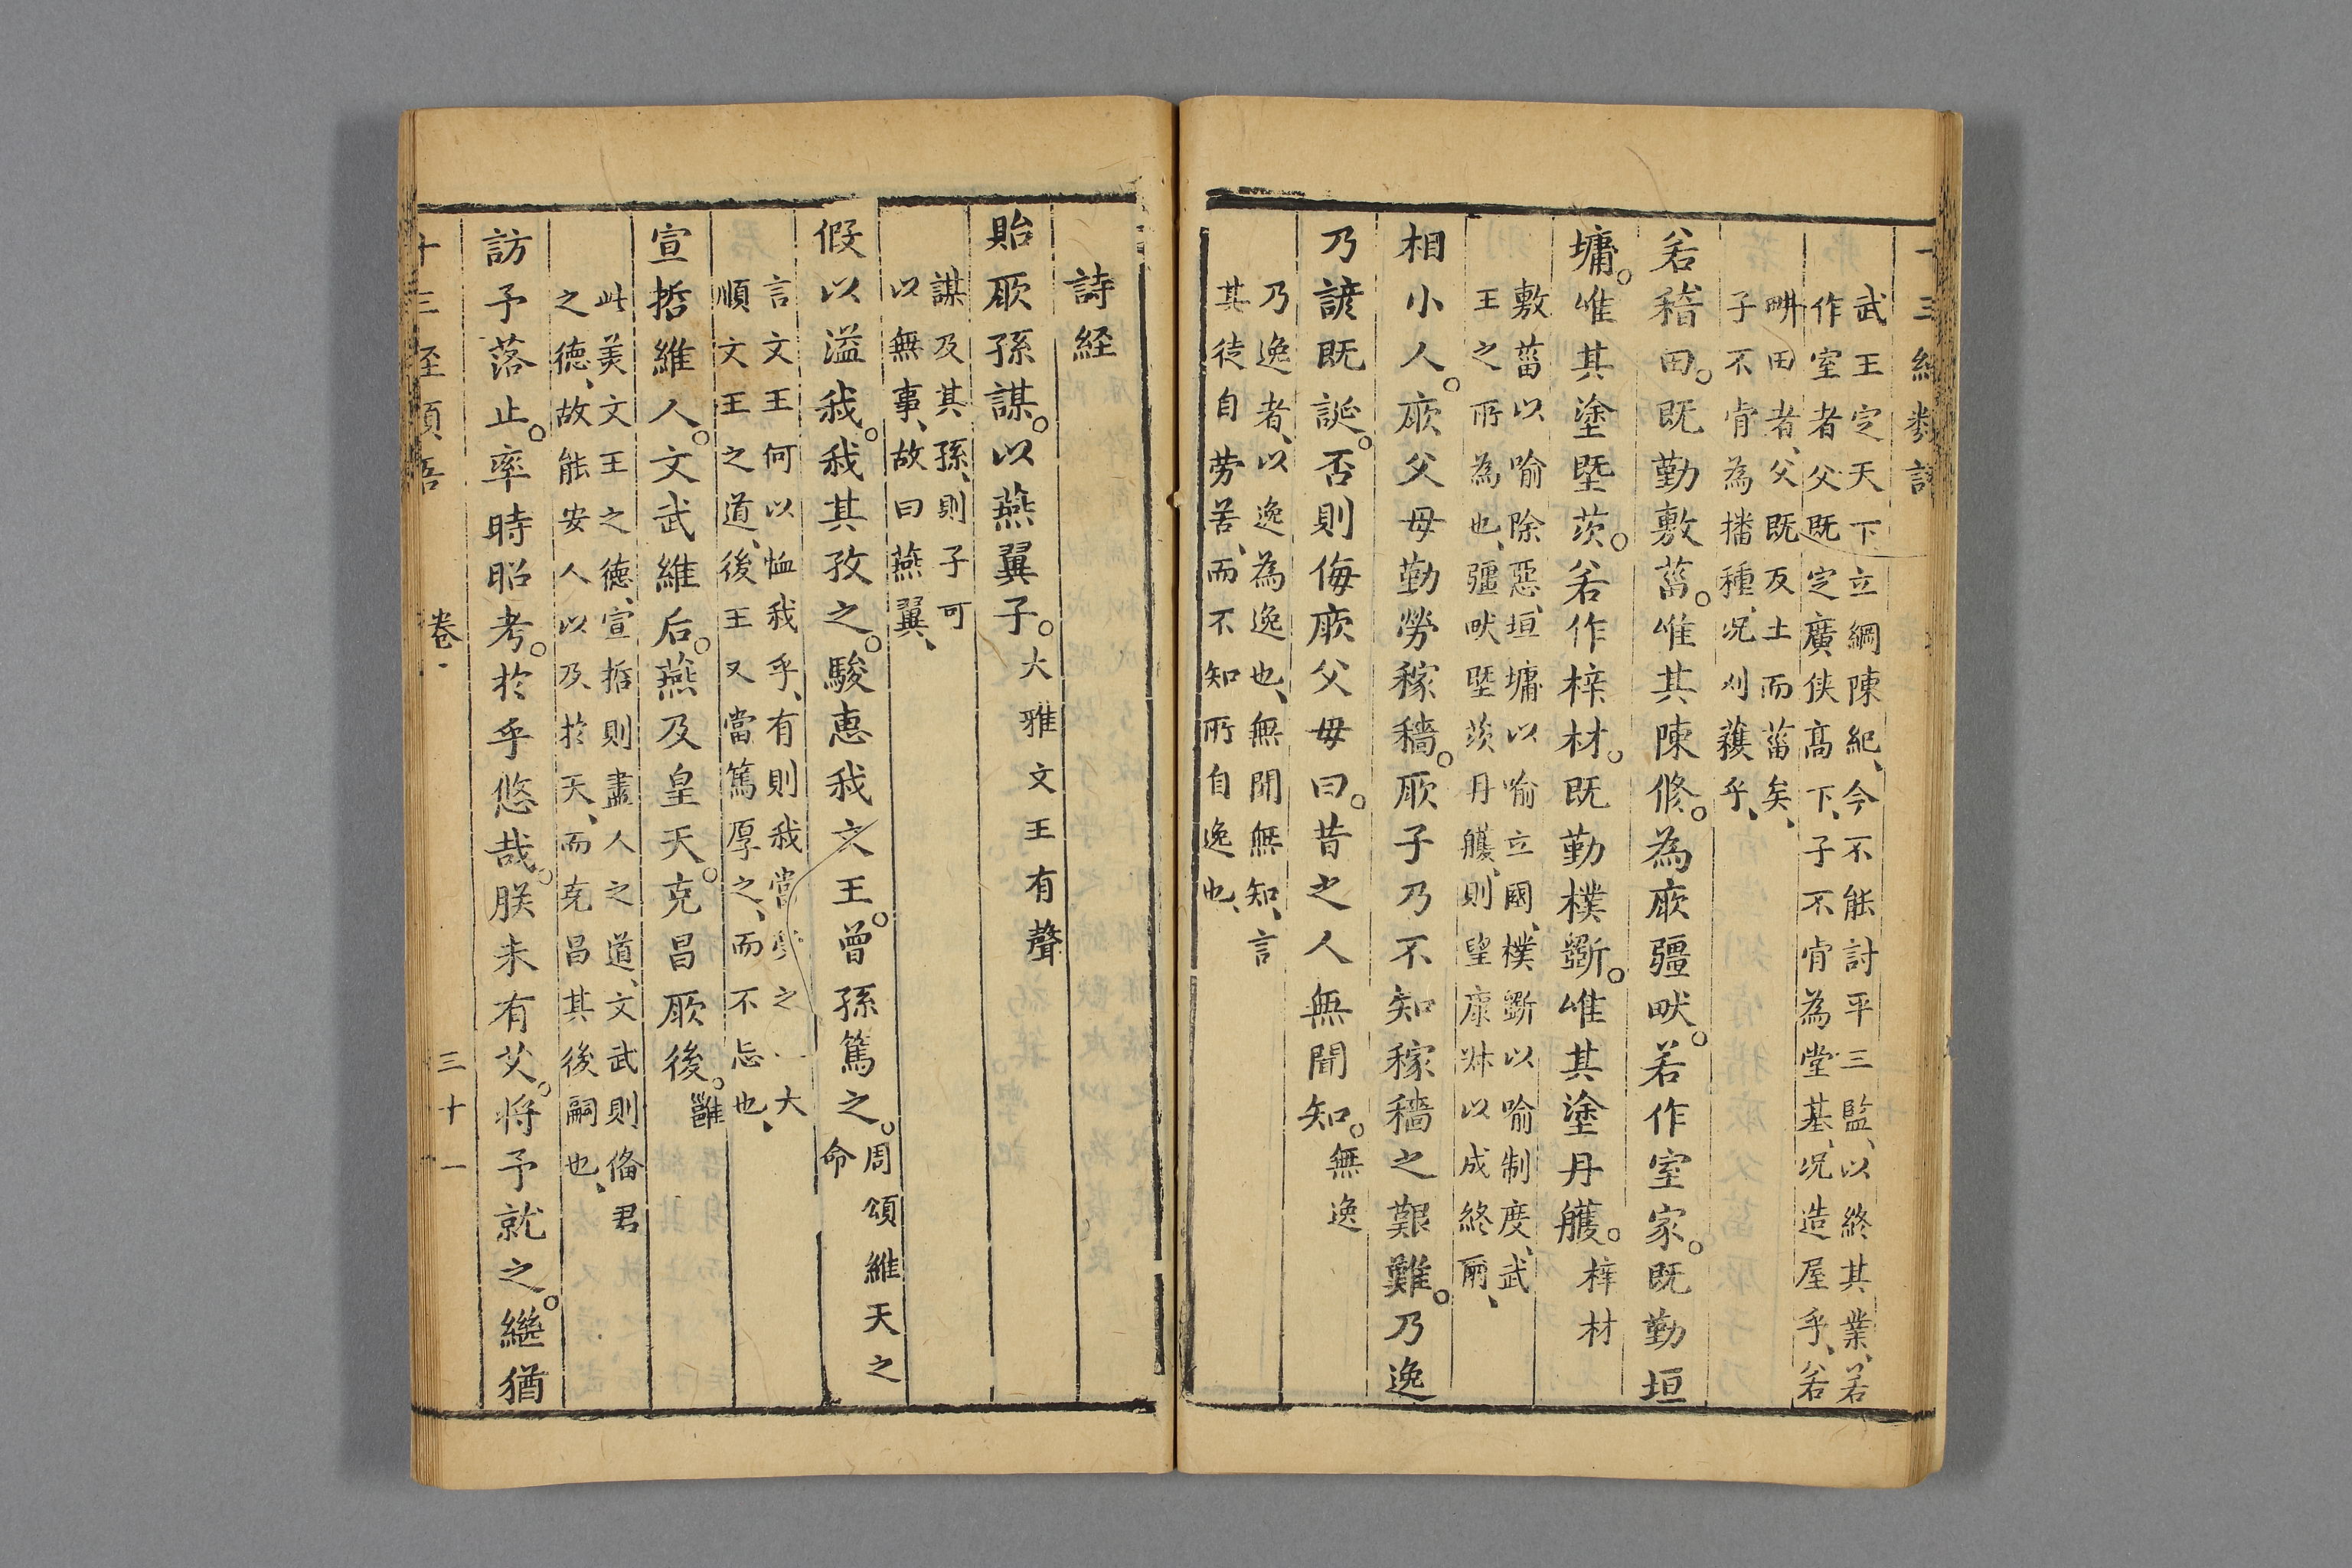 武王定天下立綱陳紀、今不能討平三監、以終其業、若
作室者父既定廣俠高下、子不肯為堂基、况造屋乎、若
畊田者、父既反土而菑矣、
子不肯為播種、况刈蔉乎、
若稽田。既勤敷菑。惟其陳修。為厥疆畎。若作室家。既勤垣
墉。惟其塗塈茨。若作梓材。既勤樸斲。惟其塗丹雘。梓材
敷菑以喻除惡、垣墉以喻立國、樸斲以喻制度、武
王之所為也、疆畎塈茨丹雘、則望康叔以成終爾、
相小人。厥父母勤勞稼穡。厥子乃不知稼穡之艱難。乃逸
乃諺既誕。否則侮厥父母曰。昔之人無聞知。無逸
乃逸者、以逸為逸也、無聞無知、言
其徒自劳苦、而不知所自逸也、
詩経
貽厥孫謀。以燕翼子。大雅文王有聲
謀及其孫、則子可
以無事、故曰燕翼、
假以溢我。我其孜之。駿惠我文王。曾孫篤之。周頌維天之
命
言文王何以恤我乎、有則我當受之以大
順文王之道、後王又當篤厚之、而不忘也、
宣哲維人。文武維后。燕及皇天。克昌厥後。雝
此美文王之德、宣哲則盡人之道、文武則俻君
之德、故能安人以及於天、而克昌其後嗣也、
訪予落止。率時昭考。於乎悠哉。朕未有艾。将予就之。繼猶
卷
三十一